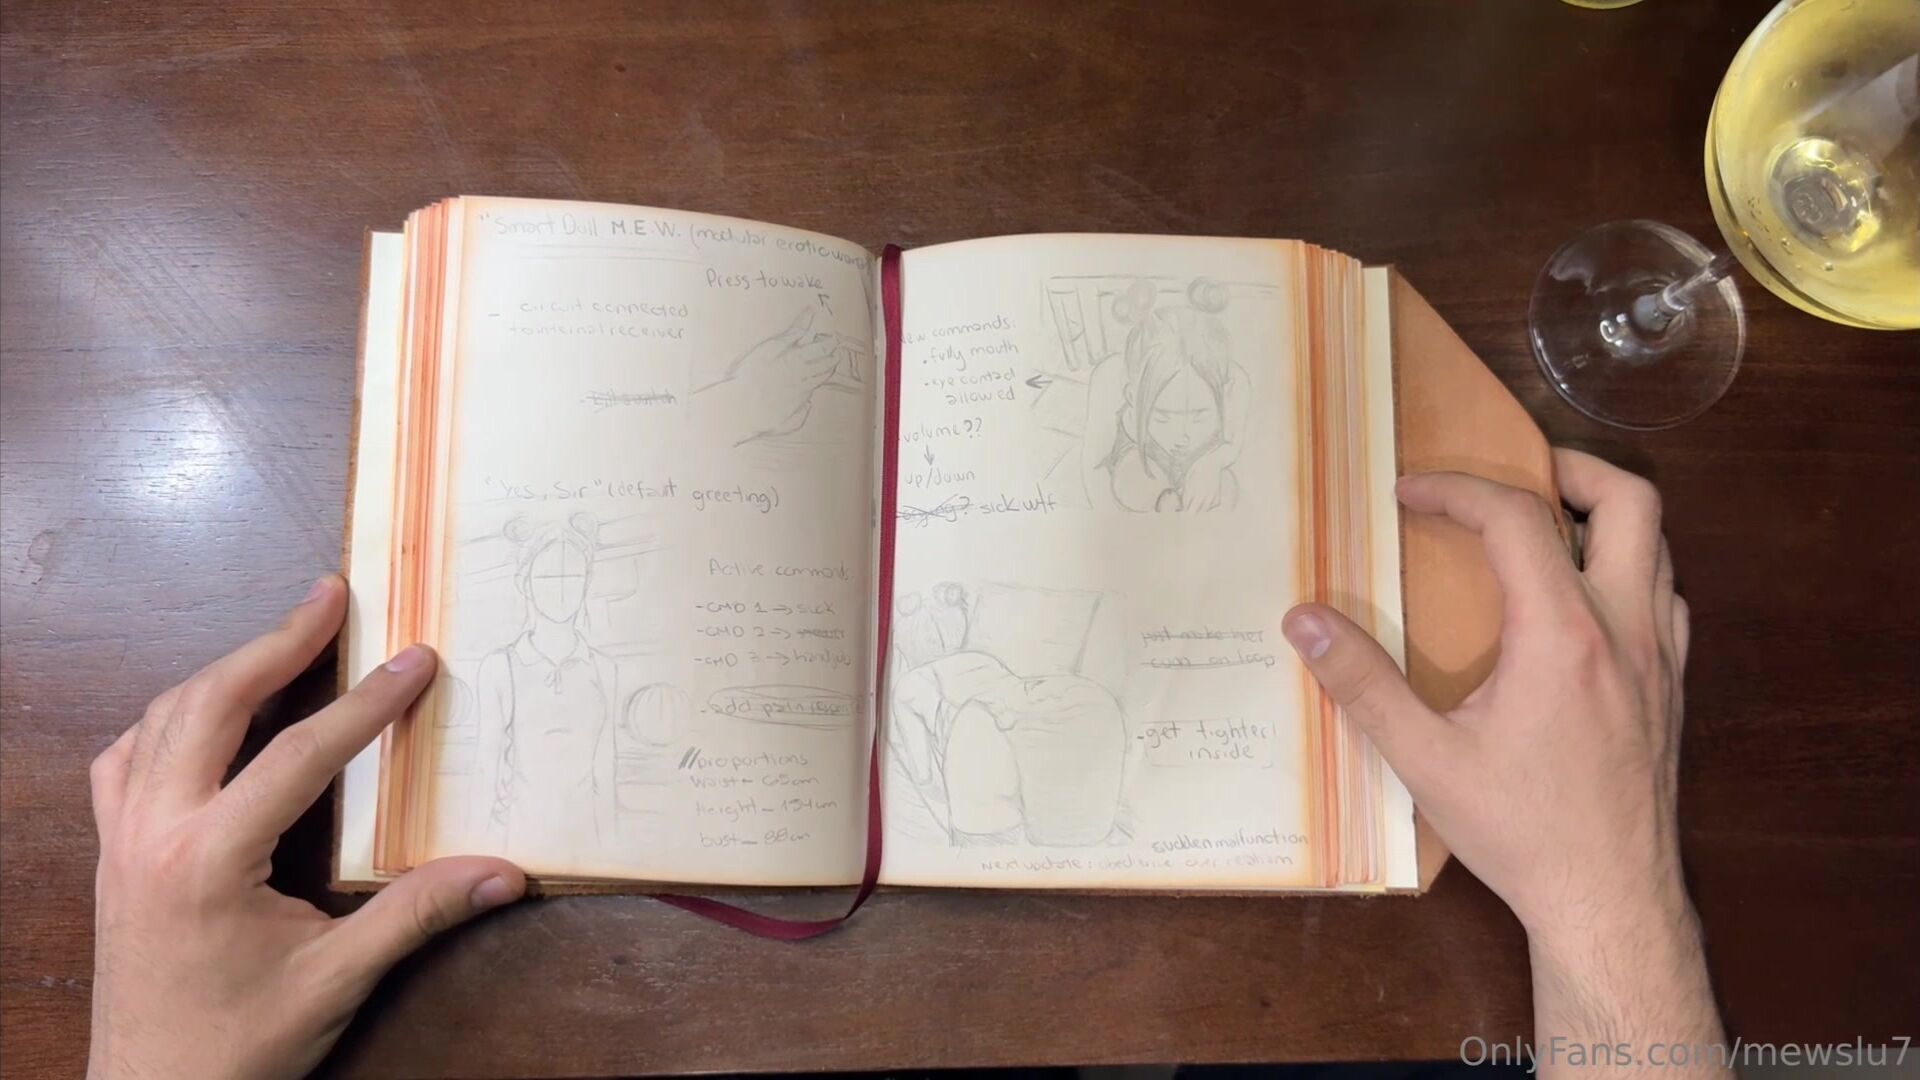 "Smart Doll M.E.W. (modular erotic
Press to wake
- circuit connected
to internal receiver
"Yes, Sir" (default greeting)
Active commands:
-CMD 1 → suck
-CMD 2 →
-CMD 3 → handjob
- add pain
//proportions
waist - 65cm
Height - 154cm
bust - 88cm
new commands:
. fully mouth
- eye contact
allowed
volume??
up/down
sick wtf
just make her
cum on loop
- get tighter
inside
sudden malfunction
Next update: obedience over realism
OnlyFans.com/mewslu7